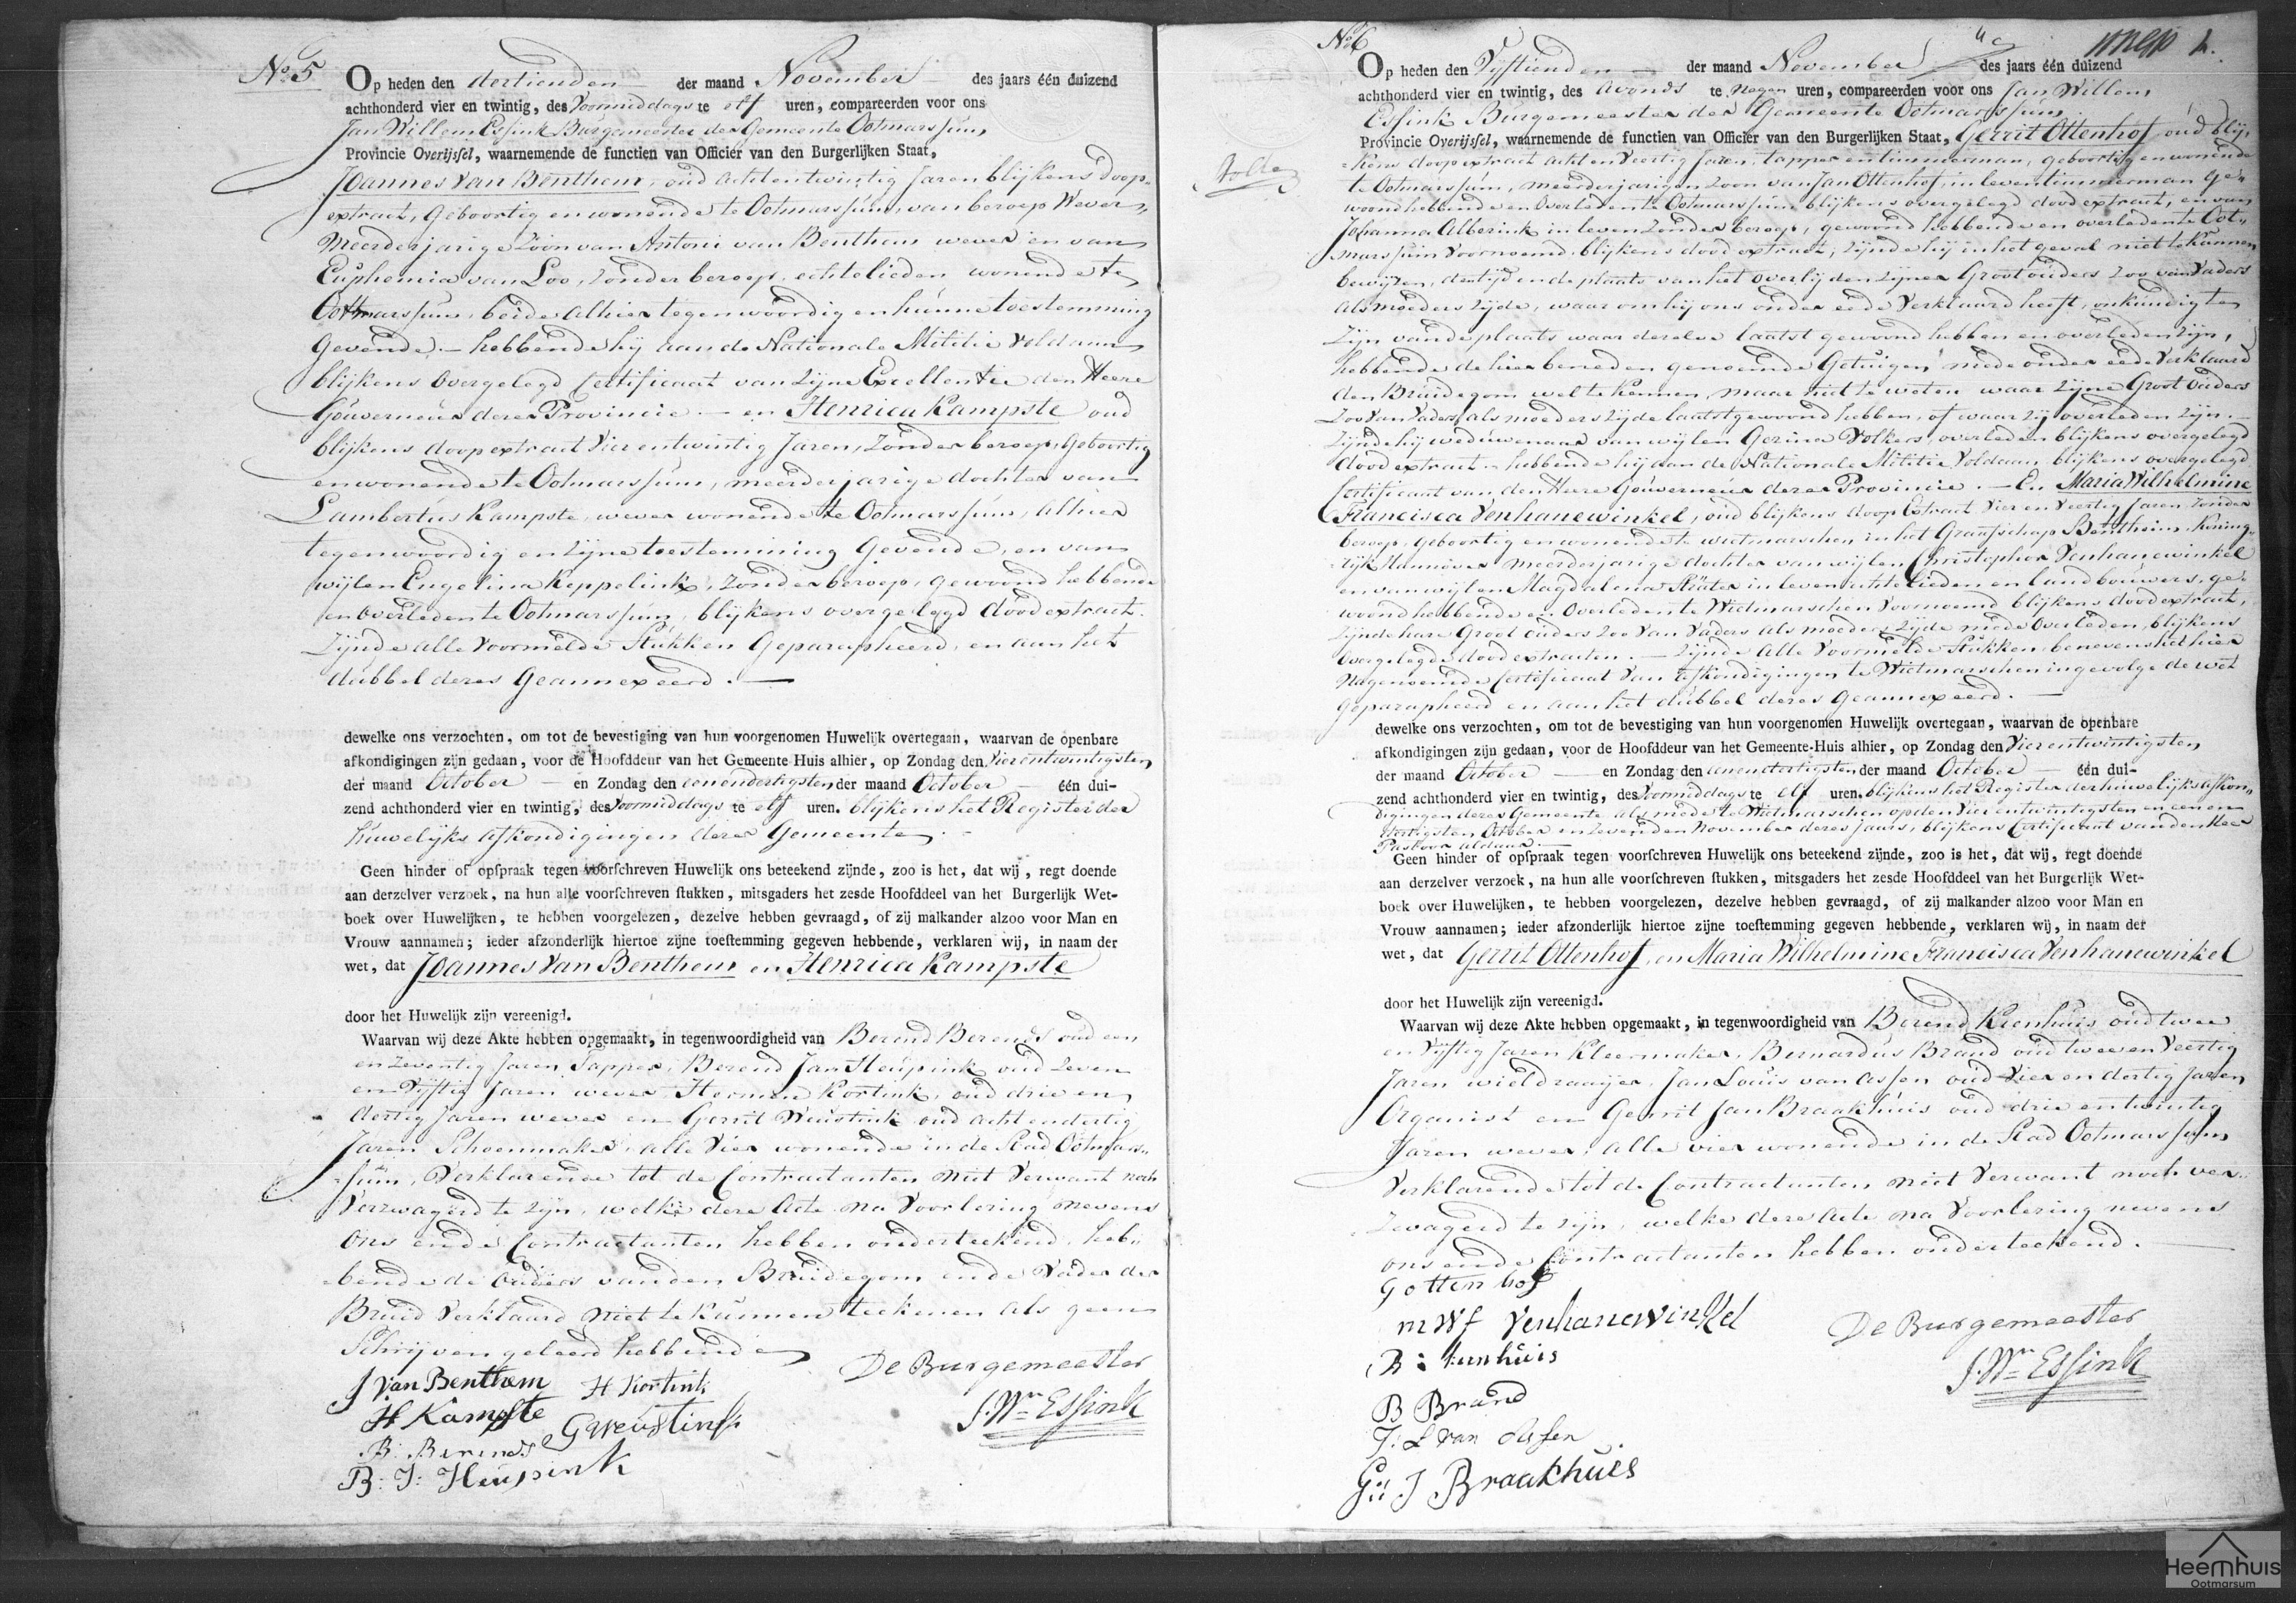 No 5
Op heden den dertienden der maand November des jaars één duizend
achthonderd vier en twintig, des Voormiddags te elf uren, compareerden voor ons
Jan Willem Essink Burgemeester der Gemeente Ootmarssum,
Provincie Overijssel, waarnemende de functien van Officier van den Burgerlijken Staat,
Joannes Van Benthem, oud achtentwintig Jaren blijkens doop-
extract, Geboortig en wonende te Ootmarssum, van beroep Wever,
Meerderjarige Zoon van Antoni van Benthem wever en van
Euphemia van Loo, zonder beroep, echtelieden wonende te
Ootmarssum, beide alhier tegenwoordig en hunne toestemming
Gevende. — hebbende hij aan de Nationale Militie voldaan
blijkens overgelegd Certificaat van Zijne Excellentie den Heere
Gouverneur dezer Provincie — en Henrica Kampste oud
blijkens doopextract Vierentwintig Jaren, Zonder beroep, Geboortig
en wonende te Ootmarssum, meerderjarige dochter van
Lambertus Kampste, wever wonende te Ootmarssum, alhier
tegenwoordig en zijne toestemming Gevende, en van
wijlen Engelina Keppelink, Zonder beroep, gewoond hebbende
en overleden te Ootmarssum, blijkens overgelegd doodextract.
Zijnde alle voormelde Stukken Geparapheerd, en aan het
dubbel dezes Geannexeerd. —
dewelke ons verzochten, om tot de bevestiging van hun voorgenomen Huwelijk overtegaan, waarvan de openbare
afkondigingen zijn gedaan, voor de Hoofddeur van het Gemeente Huis alhier, op Zondag den Vierentwintigsten
der maand October — en Zondag den eenendertigsten der maand October — één dui-
zend achthonderd vier en twintig, des Voormiddags te elf uren. blijkens het Register der
huwelijks afkondigingen dezer Gemeente. -
Geen hinder of opspraak tegen voorschreven Huwelijk ons beteekend zijnde, zoo is het, dat wij, regt doende
aan derzelver verzoek, na hun alle voorschreven stukken, mitsgaders het zesde Hoofddeel van het Burgerlijk Wet-
boek over Huwelijken, te hebben voorgelezen, dezelve hebben gevraagd, of zij malkander alzoo voor Man en
Vrouw aannamen; ieder afzonderlijk hiertoe zijne toestemming gegeven hebbende, verklaren wij, in naam der
wet, dat Joannes Van Benthem en Henrica Kampste
door het Huwelijk zijn vereenigd.
Waarvan wij deze Akte hebben opgemaakt, in tegenwoordigheid van Berend Berends oud een
en Zeventig Jaren Tapper, Berend Jan Heupink oud Zeven
en Vijftig Jaren wever, Herman Kortink, oud drie en
dertig Jaren wever en Gerrit Weustink oud achtendertig
Jaren Schoenmaker, alle Vier wonende in de Stad Ootmars-
sum, Verklarende tot de Contractanten niet Verwant noch
Verzwagerd te zijn, welke deze Acte na Voorlezing nevens
Ons en de Contractanten hebben onderteekend, heb-
bende de Ouders van den Bruidegom en de Vader der
Bruid Verklaard niet te kunnen teekenen als geen
Schrijven geleerd hebbende
J Van Benthem H Kortink
H Kampste G Weustink
B: Berends
B: J: Heupink
De Burgemeester
J. Wm Essink
No 6
Op heden den Vijftienden — der maand November des jaars één duizend
achthonderd vier en twintig, des Avonds te Negen uren, compareerden voor ons Jan Willem
Essink Burgemeester der Gemeente Ootmarssum,
Provincie Overijssel, waarnemende de functien van Officier van den Burgerlijken Staat, Gerrit Ottenhof, oud blij-
kens doopextract achtenveertig Jaren, tapper en timmerman, geboortig en wonende
te Ootmarssum, meerderjarigen Zoon van Jan Ottenhof, in leven timmerman ge-
woond hebbende en overleden te Ootmarssum blijkens overgelegd doodextract, en van
Johanna Alberink in leven zonder beroep, gewoond hebbende en overleden te Oot-
marssum voornoemd, blijkens doodextract, zijnde hij in het geval niet te kunnen
bewijzen, den tijd en de plaats van het overlijden zijner Grootouders zoo van Vaders
als moeders zijde, waarom hij ons onder eede Verklaard heeft, onkundig te
zijn van de plaats waar dezelve laatst gewoond hebben en overleden zijn,
hebbende de hier beneden genoemde Getuigen mede onder eede Verklaard
den Bruidegom wel te kennen, maar niet te weten waar zijne Groot Ouders
zoo van Vaders als moeders zijde laatst gewoond hebben, of waar zij overleden zijn. —
zijnde hij weduwenaar van wijlen Gezina Volkers, overleden blijkens overgelegd
doodextract. — hebbende hij aan de Nationale Militie Voldaan, blijkens overgelegd
Certificaat van den Heere Gouverneur dezer Provincie. — En Maria Wilhelmine
Francisca Venhanewinkel, oud blijkens doop Extract Vier en Veertig Jaren zonder
beroep, geboortig en wonende te Wietmarschen in het Graafschap Bentheim, Koning-
rijk Hannover meerderjarige dochter van wijlen Christopher Venhanewinkel
en van wijlen Magdalena Sträter in leven echtelieden en landbouwers, ge-
woond hebbende en overleden te Wietmarschen voornoemd blijkens doodextract,
zijnde hare Groot Ouders zoo van Vaders als moeders zijde mede overleden, blijkens
overgelegde doodextracten. — zijnde alle Voormelde Stukken, benevens het hier
Nagenoemde Certificaat van afkondigingen te Wietmarschen ingevolge de wet
geparapheerd en aan het dubbel dezes Geannexeerd. —
dewelke ons verzochten, om tot de bevestiging van hun voorgenomen Huwelijk overtegaan, waarvan de openbare
afkondigingen zijn gedaan, voor de Hoofddeur van het Gemeente-Huis alhier, op Zondag den Vierentwintigsten
der maand October — en Zondag den eenendertigsten der maand October — één dui-
zend achthonderd vier en twintig, des Voormiddags te elf uren. blijkens het Register der huwelijks afkon-
digingen dezer Gemeente als mede te Wietmarschen op den Vier entwintigsten en een en
dertigsten October en Zevenden November dezes jaars, blijkens Certificaat van den Heer
Pastoor aldaar. —
Geen hinder of opspraak tegen voorschreven Huwelijk ons beteekend zijnde, zoo is het, dat wij, regt doende
aan derzelver verzoek, na hun alle voorschreven stukken, mitsgaders het zesde Hoofddeel van het Burgerlijk Wet-
boek over Huwelijken, te hebben voorgelezen, dezelve hebben gevraagd, of zij malkander alzoo voor Man en
Vrouw aannamen; ieder afzonderlijk hiertoe zijne toestemming gegeven hebbende, verklaren wij, in naam der
wet, dat Gerrit Ottenhof, en Maria Wilhelmine Francisca Venhanewinkel
door het Huwelijk zijn vereenigd.
Waarvan wij deze Akte hebben opgemaakt, in tegenwoordigheid van Berend Kienhuis oud twee
en Vijftig Jaren Kleermaker, Bernardus Brand oud twee en Veertig
Jaren wieldraaijer, Jan Louis van Assen oud Vier en dertig Jaren
Organist en Gerrit Jan Braakhuis oud drie entwintig
Jaren wever, alle vier wonende in de Stad Ootmarssum
Verklarende tot de Contractanten niet Verwant noch ver-
zwagerd te zijn, welke deze Acte na Voorlezing nevens
ons en de Contractanten hebben onderteekend. —
G ottenhof
M W f Venhanewinkel
B: kienhuis
B Brand
J: L van Assen
G: J Braakhuis
De Burgemeester
J. Wm Essink
Heemhuis
Ootmarsum